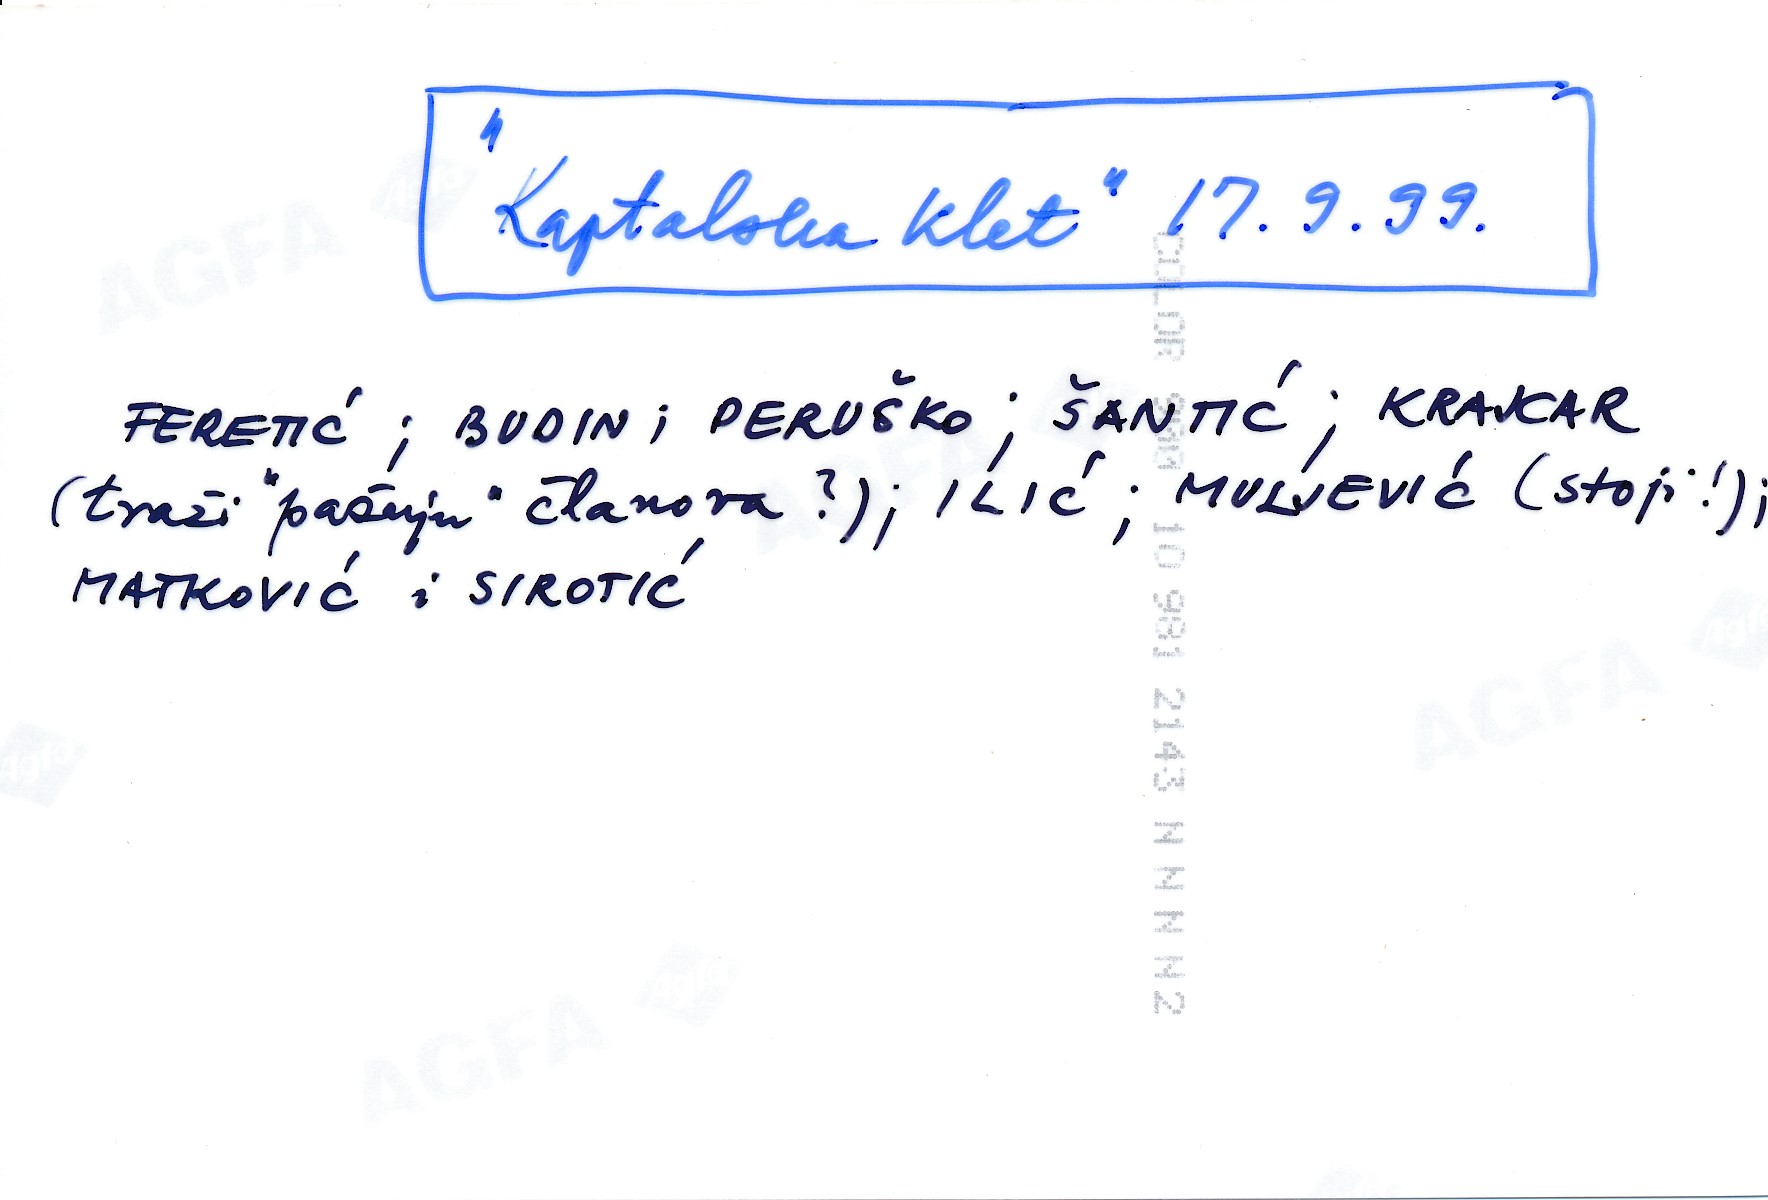 "Kaptalska klet" 17.9.99.
FERETIĆ; BUDIN; PERUŠKO; ŠANTIĆ; KRAJCAR
(traži "pašnju" članova?); ILIĆ; MULJEVIĆ (stoji!);
MATKOVIĆ i SIROTIĆ
AGFA
AGFA
AGFA
AGFA